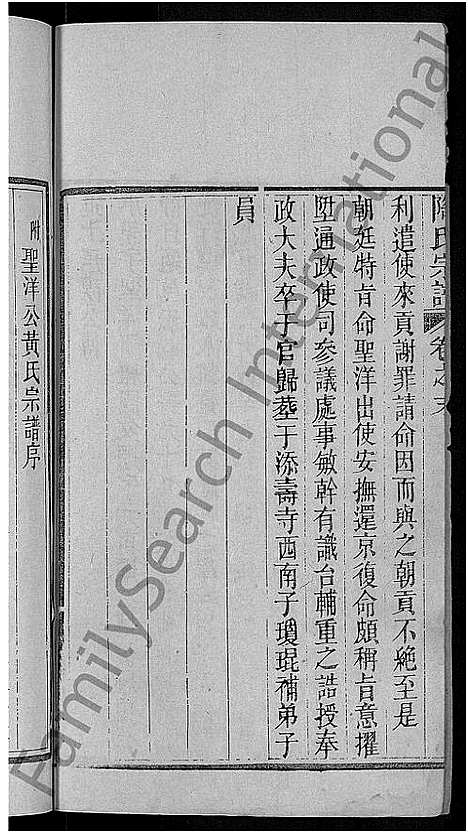 陶氏宗譜 卷之末
利遣使來貢謝罪請命因而與之朝貢不絶至是
朝廷特旨命聖洋出使安撫還京復命頗稱旨意擢
陞通政使司參議處事敏幹有識台輔重之誥授奉
政大夫卒于官歸葬于添壽寺西南子瓊琨補弟子
員
附 聖洋公黃氏宗譜序
FamilySearch International